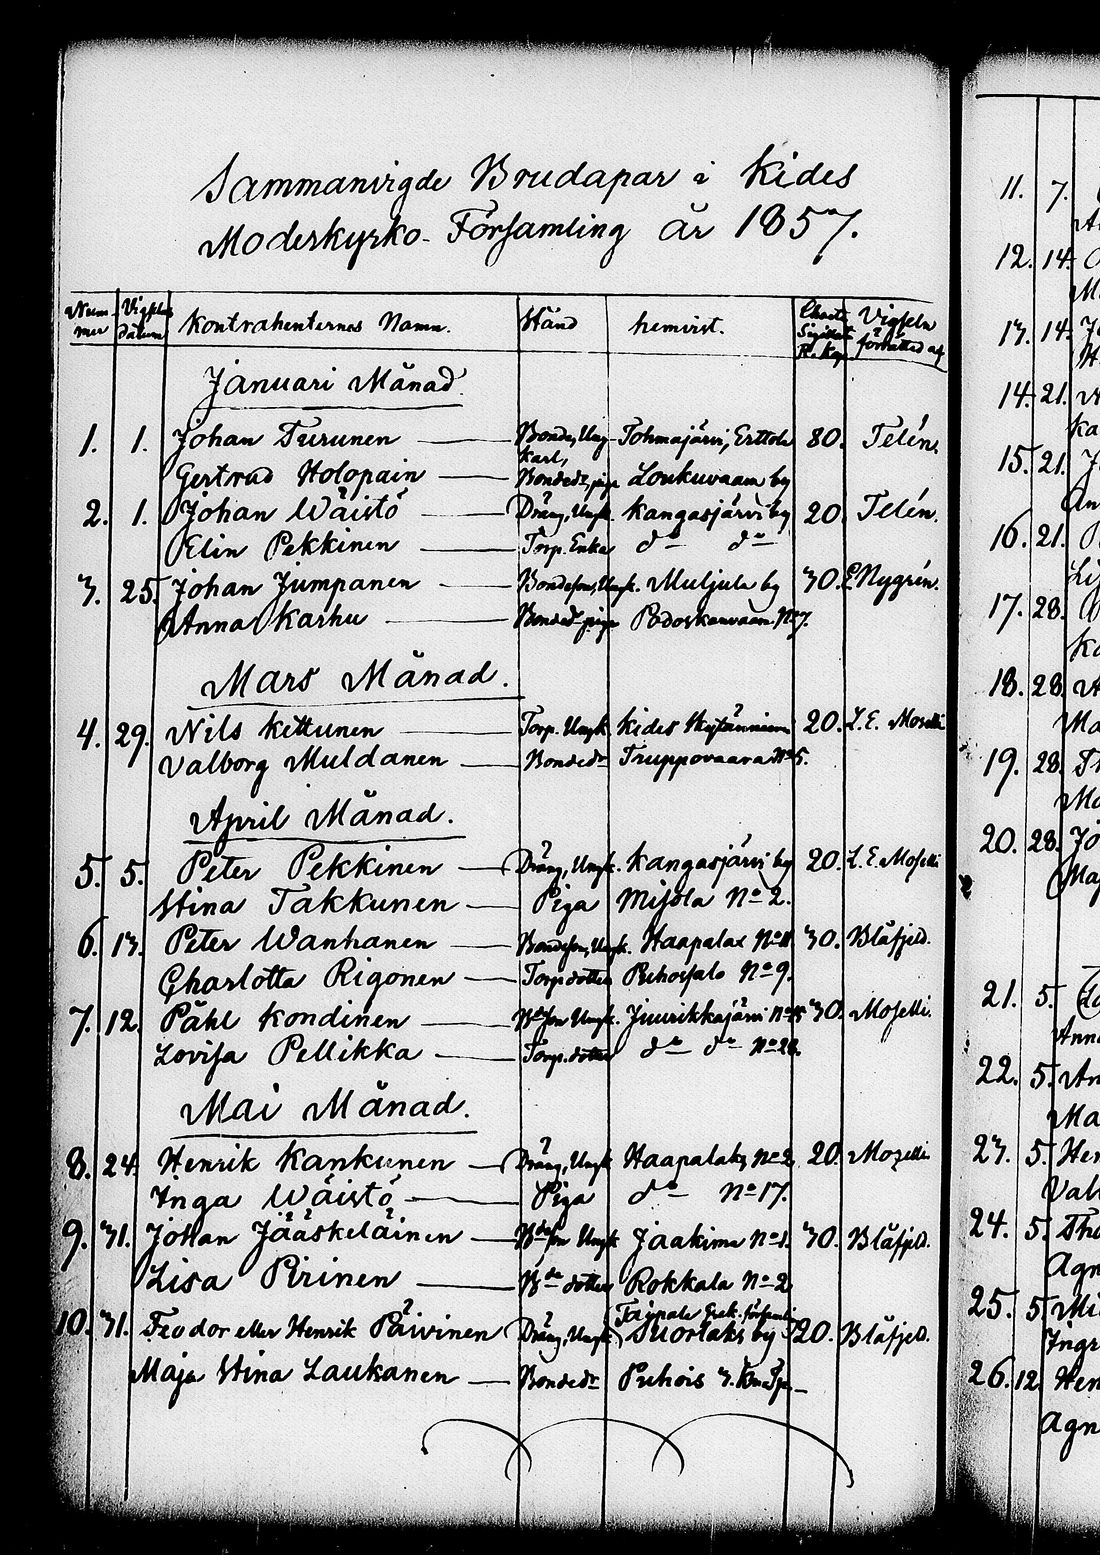 Sammanvigde Brudapar i Kides
Moderkyrko-Församling år 1857.
Num-mer Vigsels datum Kontrahenternas Namn. Stånd hemvist. Charta Sigillat R. Kop Vigseln förrättad af
Januari Månad
1. 1. Johan Turunen Bonde, Ung-karl, Tohmajärvi, Erttola 80. Telén.
Gertrud Holopain Bonded:r, piga Loukuvaara by
2. 1. Johan Wäistö Dräng, Ungk. Kangasjärvi by 20. Telén.
Elin Pekkinen Torp. Enka d:o d:o
3. 25. Johan Jumpanen Bondeson, Ungk. Muljula by 30. Nygrén.
Anna Karhu Bonded:r piga Podoskanvaara No 7.
Mars Månad.
4. 29. Nils Kettunen Torp. Ungk. Kides 20. L. E. Moselli
Valborg Muldanen Bonded:r Truppovaara No 5.
April Månad.
5. 5. Peter Pekkinen Dräng, Ungk. Kangasjärvi by 20. L. E. Moselli
Stina Takkunen Piga Misola No 2.
6. 13. Peter Wanhanen Bondeson, Ungk. Haapalax 30. Blåfjeld.
Charlotta Rigonen Torp.dotter Puhossalo No 9.
7. 12. Påhl Kondinen Ungk. Juurikkajärvi 30. Moselli.
Lovisa Pellikka Torp.dotter d:o d:o
Mai Månad.
8. 24. Henrik Kankunen Dräng, Ungk. Haapalaks No 2 20. Moselli
Inga Wäistö Piga d:o No 17.
9. 31. Johan Jääskeläinen B:deson Ungk Jaakima No 1. 30. Blåfjeld.
Lisa Pirinen B:de dotter Rokkala No 2
10. 31. Feodor eller Henrik Päivinen Dräng, Ungk Taipale Grek. församl. Suorlaks by 20. Blåfjeld.
Maja Stina Laukanen Bonded:r Puhois
11. 7.
12. 14.
13. 14.
14. 21.
15. 21.
16. 21.
17. 28.
18. 28.
19. 28.
20. 28.
21. 5.
22. 5.
23. 5.
24. 5.
25. 5.
26. 12.